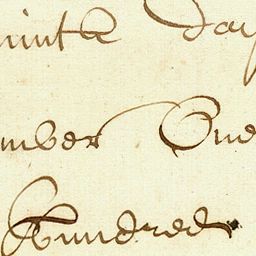 ninth Day
ember One
Hundred